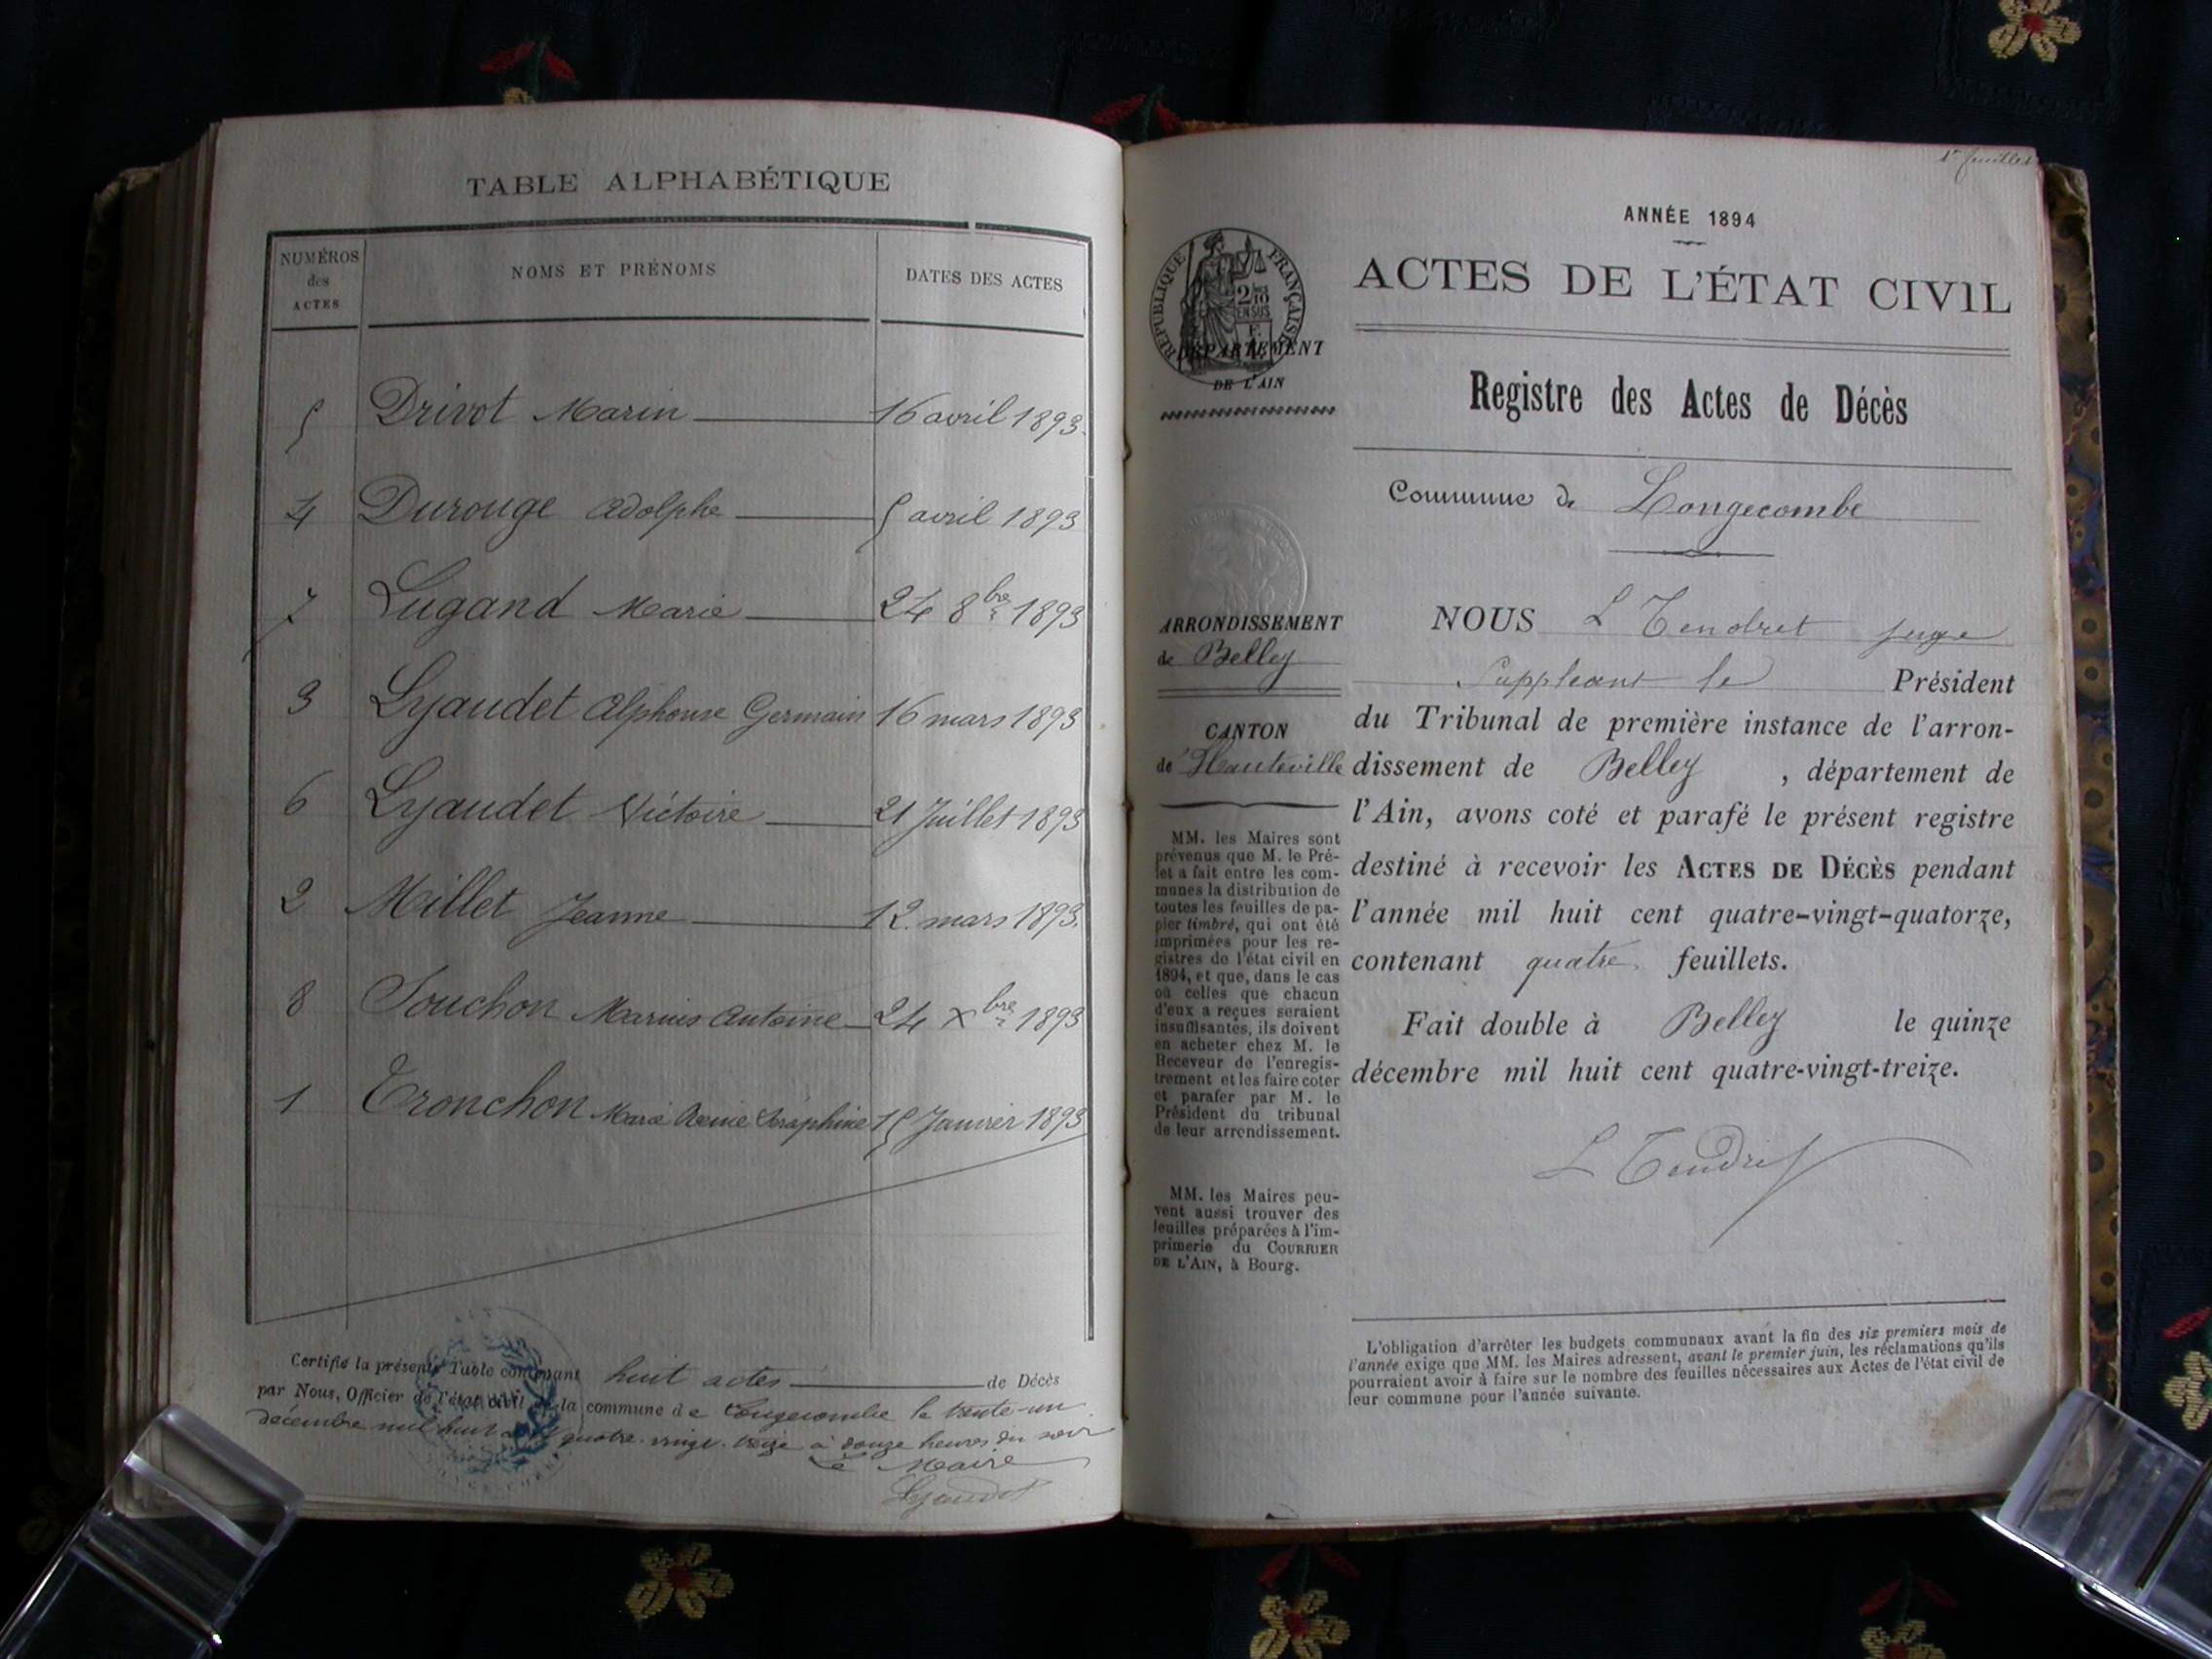 TABLE ALPHABÉTIQUE
NUMÉROS des ACTES NOMS ET PRÉNOMS DATES DES ACTES
5 Drivot Marin 16 avril 1893.
4 Durouge Adolphe 5 avril 1893
7 Lugand Marie 24 8bre 1893
3 Lyaudet Alphonse Germain 16 mars 1893
6 Lyaudet Victoire 21 Juillet 1893
2 Millet Jeanne 12 mars 1893.
8 Souchon Marius Antoine 24 Xbre 1893
1 Tronchon Marie Reine Séraphine 15 Janvier 1893
Certifié la présente Table contenant huit actes de Décès
par Nous, Officier de l'état civil de la commune de Longecombe le trente-un
décembre mil huit cent quatre-vingt-treize à douze heures du soir
Le Maire
Lyaudet
1er feuillet
ANNÉE 1894
ACTES DE L'ÉTAT CIVIL
Registre des Actes de Décès
Commune de Longecombe
NOUS L Tendret juge
suppléant le Président
du Tribunal de première instance de l'arron-
dissement de Belley, département de
l'Ain, avons coté et parafé le présent registre
destiné à recevoir les ACTES DE DÉCÈS pendant
l'année mil huit cent quatre-vingt-quatorze,
contenant quatre feuillets.
Fait double à Belley le quinze
décembre mil huit cent quatre-vingt-treize.
L Tendret
RÉPUBLIQUE FRANÇAISE
DÉPARTEMENT
DE L'AIN
ARRONDISSEMENT
de Belley
CANTON
de Hauteville
MM. les Maires sont
prévenus que M. le Pré-
fet a fait entre les com-
munes la distribution de
toutes les feuilles de pa-
pier timbré, qui ont été
imprimées pour les re-
gistres de l'état civil en
1894, et que, dans le cas
où celles que chacun
d'eux a reçues seraient
insuffisantes, ils doivent
en acheter chez M. le
Receveur de l'enregis-
trement et les faire coter
et parafer par M. le
Président du tribunal
de leur arrondissement.
MM. les Maires peu-
vent aussi trouver des
feuilles préparées à l'im-
primerie du COURRIER
DE L'AIN, à Bourg.
L'obligation d'arrêter les budgets communaux avant la fin des six premiers mois de
l'année exige que MM. les Maires adressent, avant le premier juin, les réclamations qu'ils
pourraient avoir à faire sur le nombre des feuilles nécessaires aux Actes de l'état civil de
leur commune pour l'année suivante.